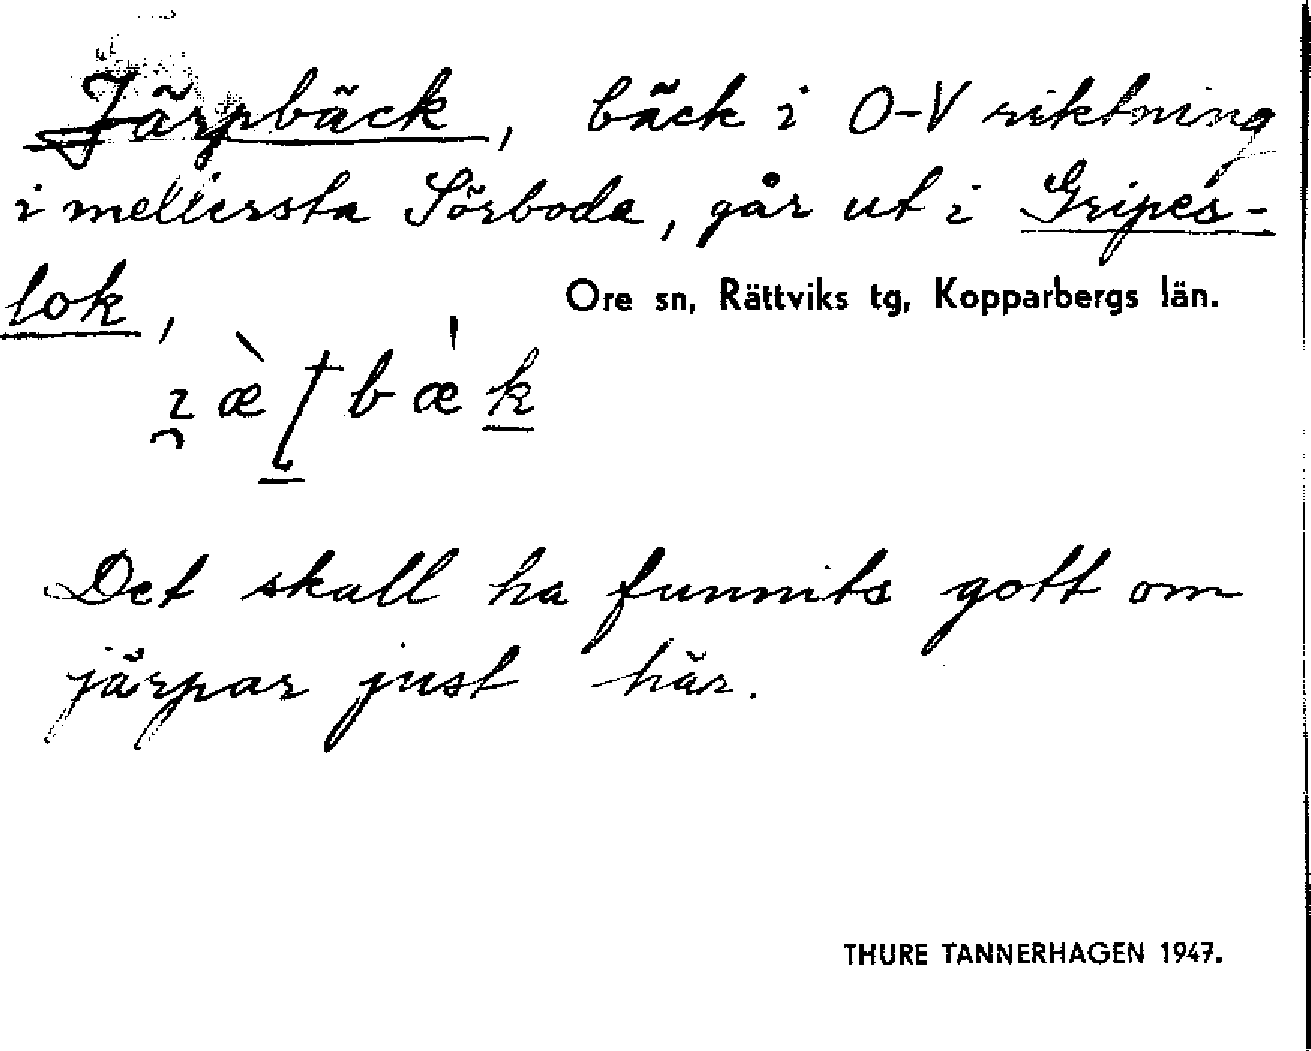 Järpbäck, bäck i O-V riktning
i mellersta Sörboda, går ut i Gripes-
lok,
Ore sn, Rättviks tg, Kopparbergs län.
Det skall ha funnits gott om
järpar just här.
THURE TANNERHAGEN 1947.